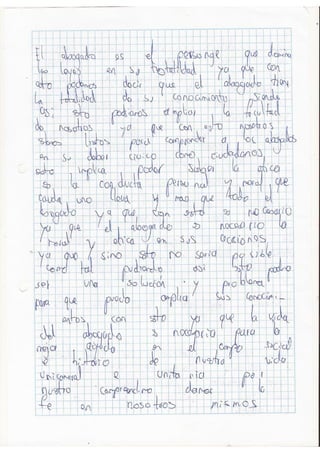 El abogado es el personaje que domina
las leyes en su totalidad ya que con
esto podemos decir que el abogado tiene
la totalidad de su conocimiento, siendo
asi esto podriamos ampliar la facultad
de nosotros ya que con esto nosotros
listos para comprender a los abogados
en su deber civico como ciudadanos y
esto implica poder saber la etica
es la conducta personal y moral que
cada uno lleva y mas que todo el
abogado ya que con esto es necesario
ya que el abogado es necesario la
moral y etica en sus acciones
ya que si no esto no seria posible
como tal pudiendo asi esto podra
ser una solución y problema
para que pueda ampliar sus conocimi-
entos con esto ya que la vida
del abogado es necesaria para la
en el campo social
e historio de nuestra vida
e unitaria por
nuestro comprendimo darnos la
fe en nosotros mismos